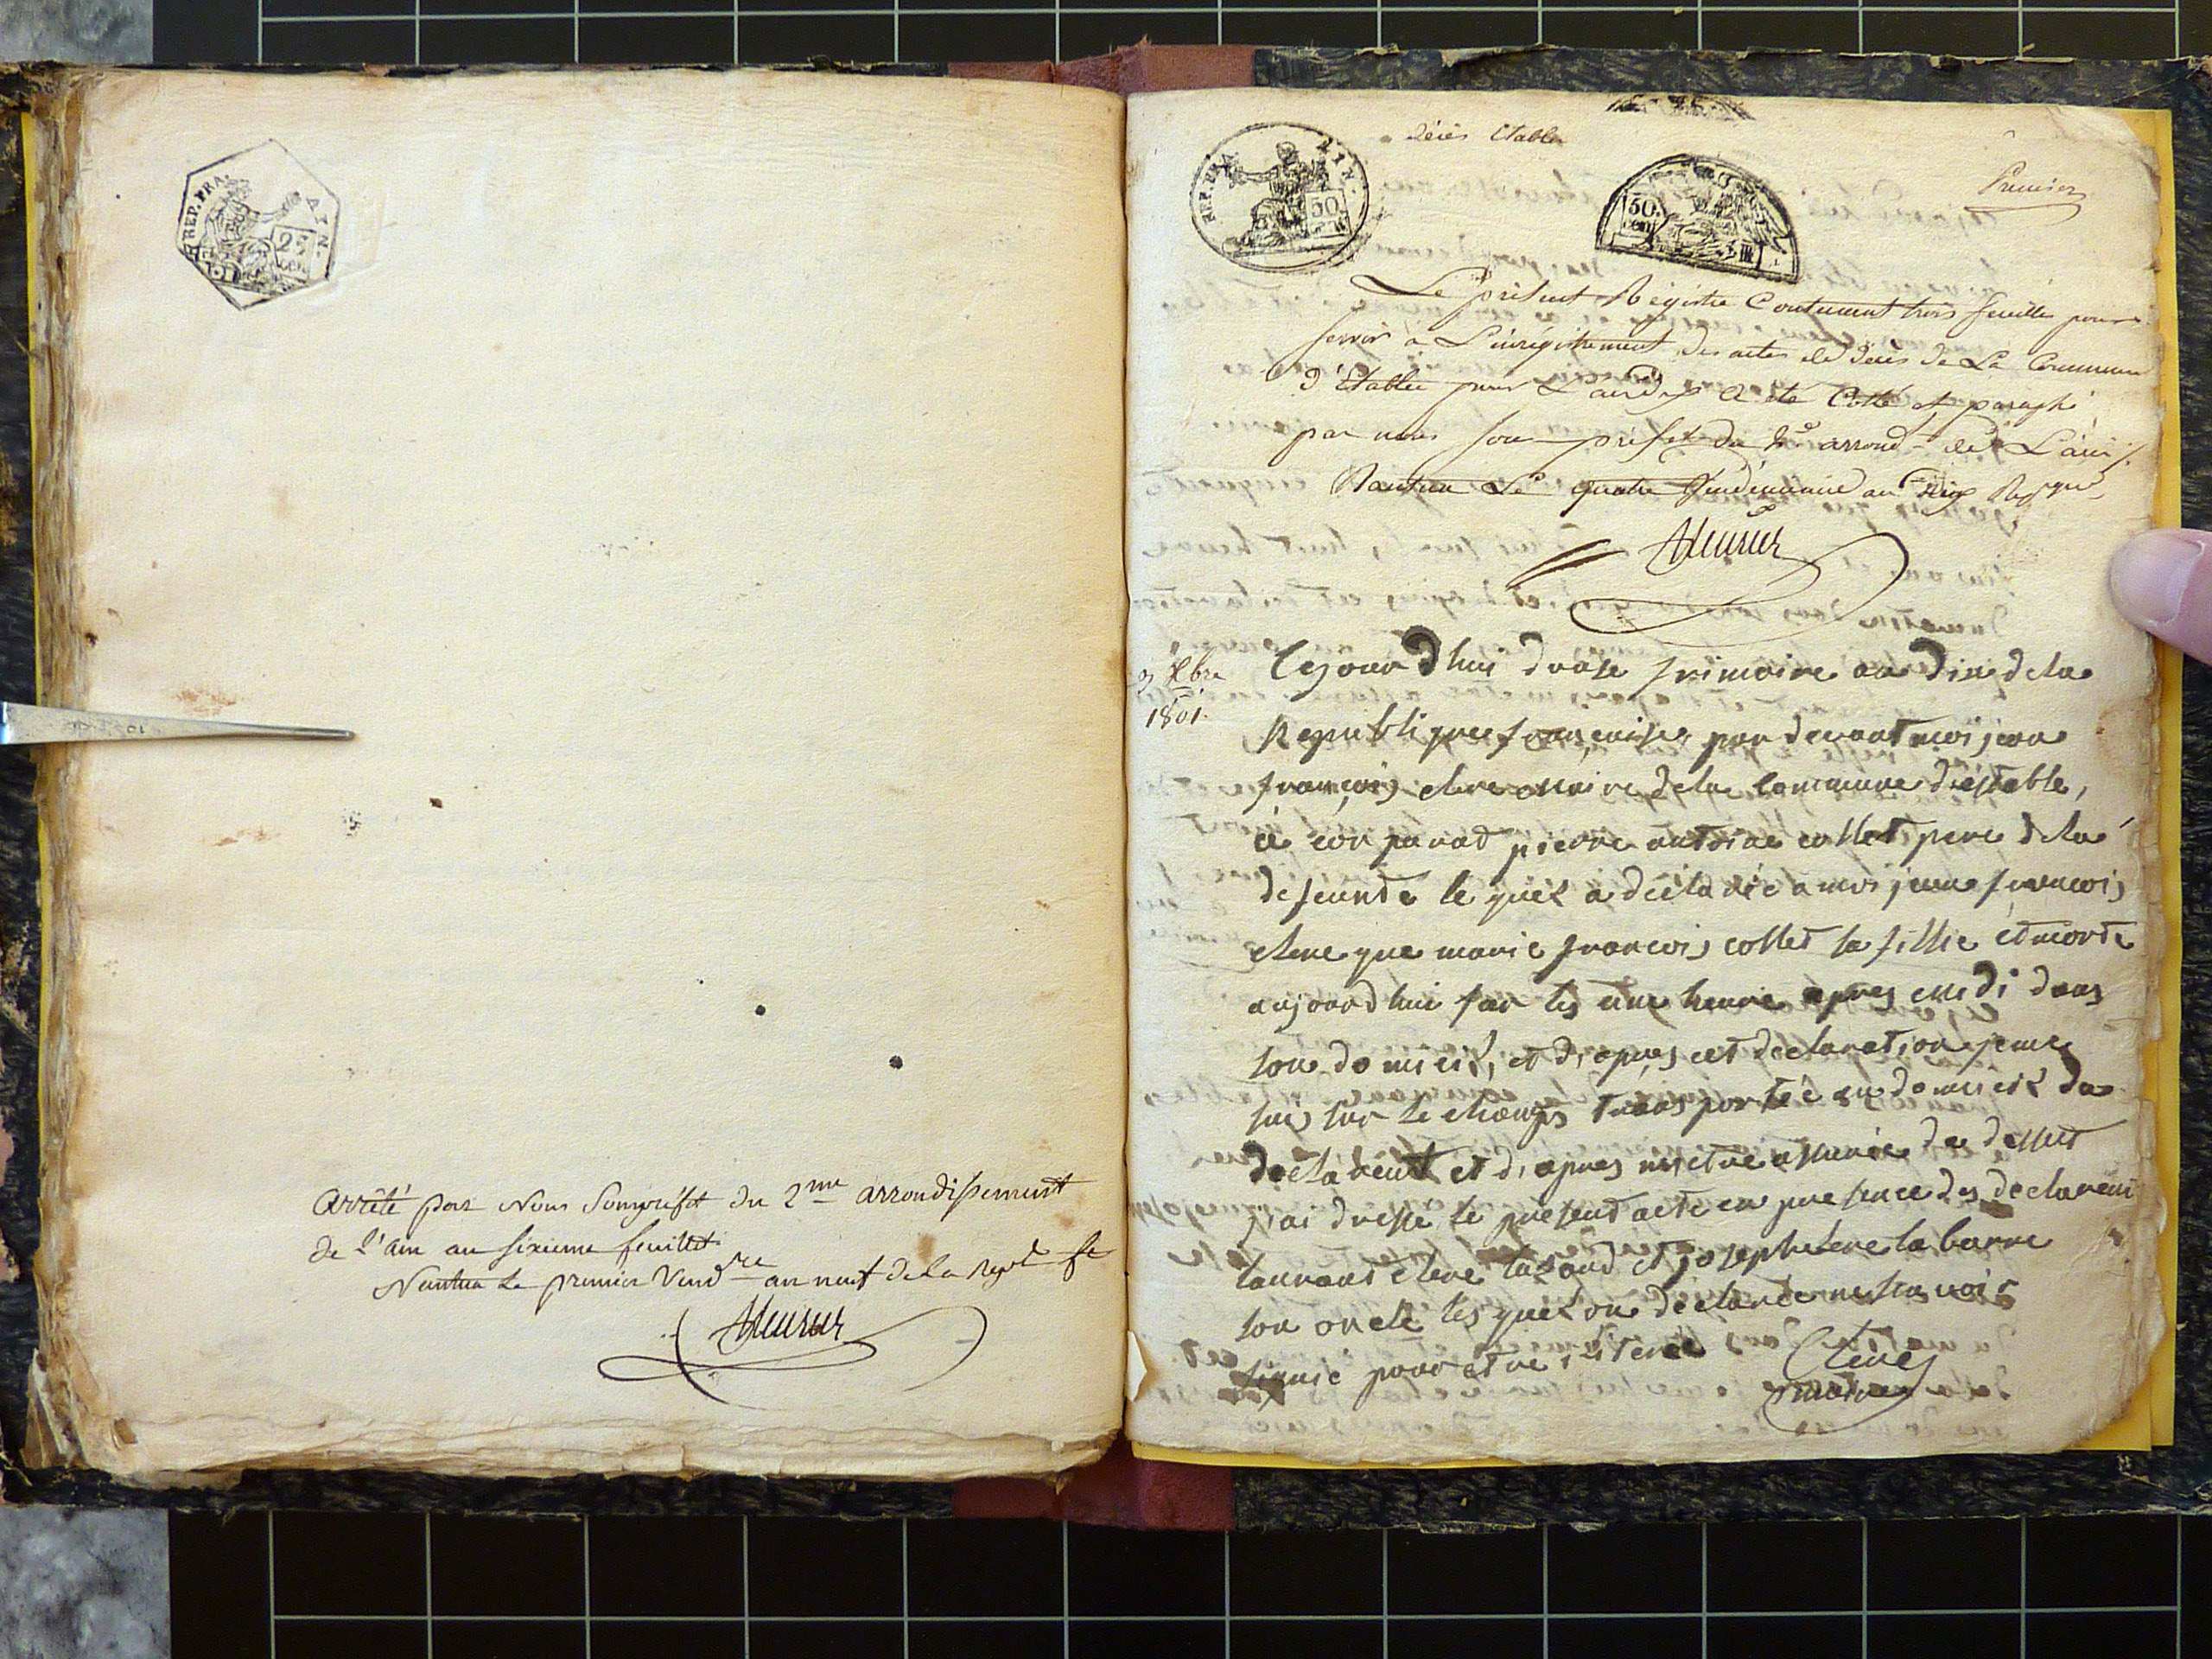 REP. FRA.
AIN.
25
cen
Arrêté par Nous Sousprefet du 2me arrondissement
de l'ain au sixieme feuillet
Nantua Le premier Vendre an neuf de la Repe fe
décès Etables
REP. FRA.
AIN.
50
50.
cen
Premier
Le présent Régistre Contenant trois feuille pour
servir a L'enrégistrement des actes de décès de La Commune
d'Etable pour L'an dix a été Cotté et paraphé
par nous sous préfet du 2e arrond. de L'ain
Nantua Le quatre Vendémiaire an Dix
9 Xbre
1801.
Cejourdhui douse frimaire an Dix dela
Republique françaises par devant moi jean
françois clere maire dela Commune d'éstable,
à conparad pierre antoine collet pere dela
defeunte lequel a déclaréé a moi jean francois
clere que marie francois collet sa fillie et morte
aujourdhui sur les une heure apres midi dans
son domicil, et d'apres cet declaration jeme
suis sur le champs transportéé au domicil du
declarent et d'apres metre assurée du dessus
jai dresse le present acte en presence des declarent
laurans clere et joseph clere la barre
son oncle lesquel on declaré ne scavoir
signie pour etre
Cleres
maire